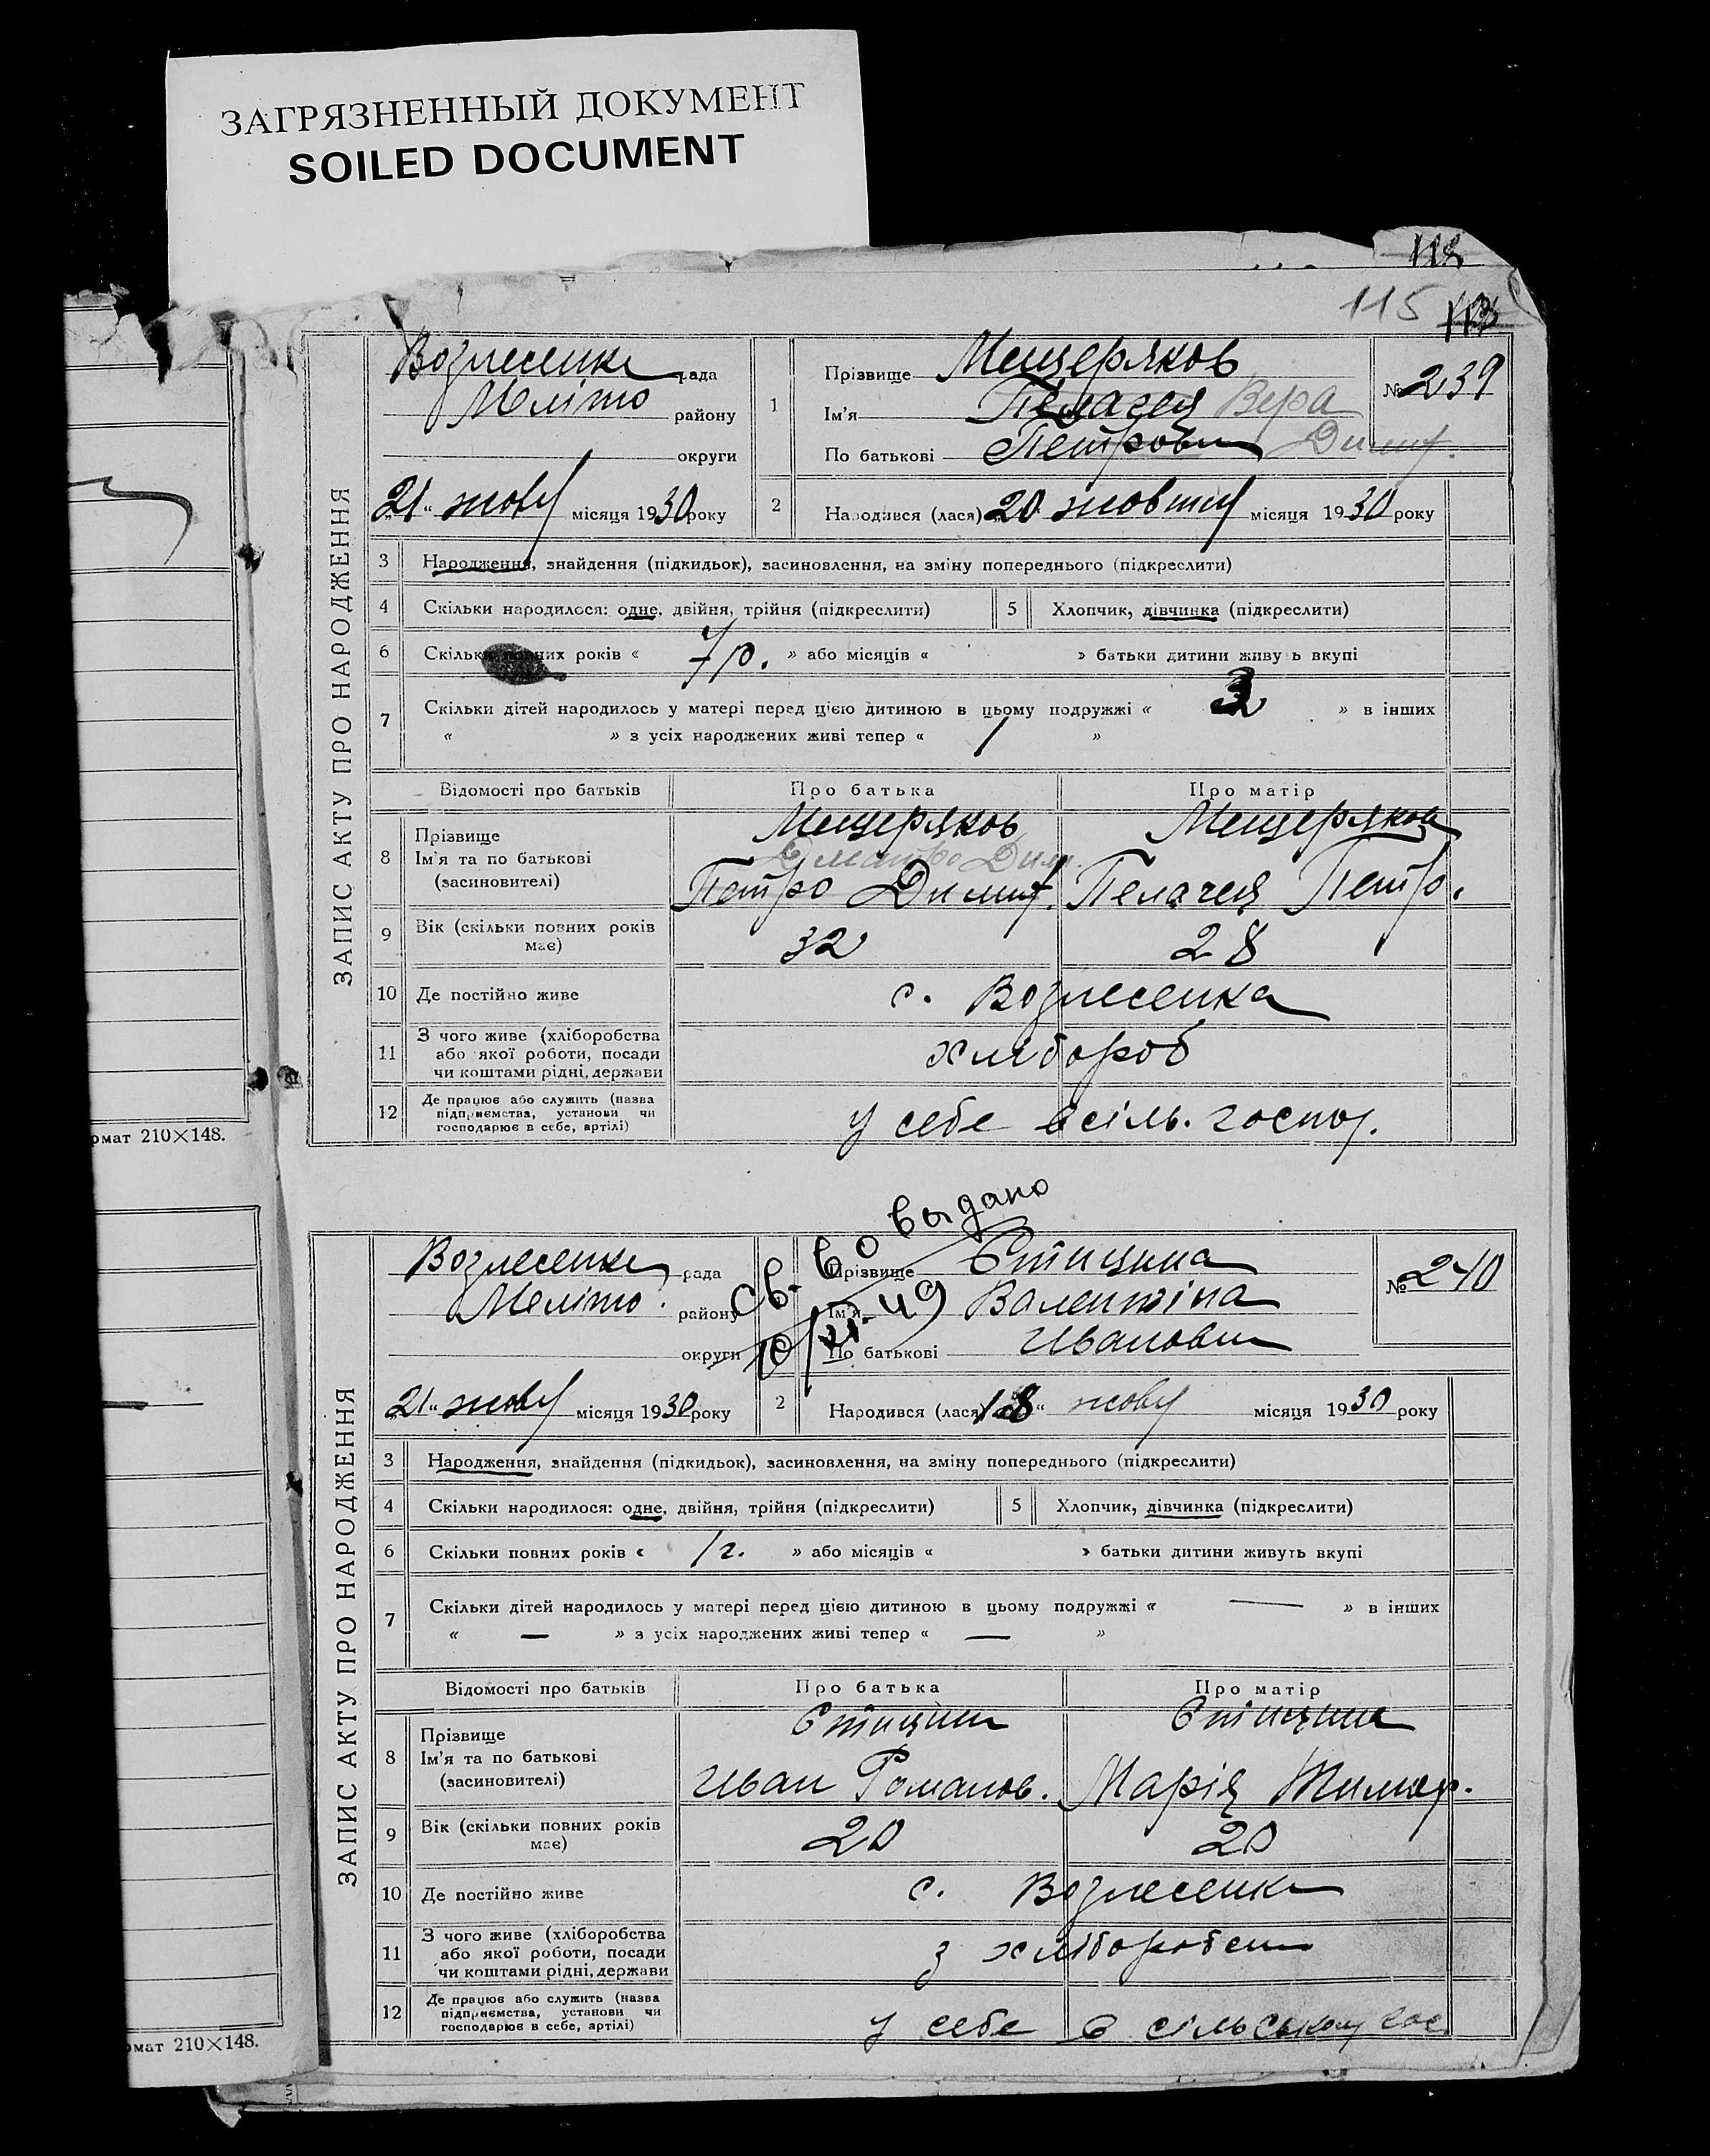 ЗАГРЯЗНЕННЫЙ ДОКУМЕНТ
SOILED DOCUMENT
115
ЗАПИС АКТУ ПРО НАРОДЖЕННЯ
Вознесенка рада
Меліто району
округи
21 " жовт місяця 1930 року
1
Прізвище Мещеряков
Ім'я Пелагея Вера
По батькові Петровна Димит.
№ 239
2 Народився (лася) 20 жовтня місяця 1930 року
3 Народження, знайдення (підкидьок), засиновлення, на зміну попереднього (підкреслити)
4 Скільки народилося: одне, двійня, трійня (підкреслити) 5 Хлопчик, дівчинка (підкреслити)
6 Скільки повних років « 7 р. » або місяців « » батьки дитини живу ь вкупі
7 Скільки дітей народилось у матері перед цією дитиною в цьому подружжі « 3 » в інших
« » з усіх народжених живі тепер « 1 »
Відомості про батьків Про батька Про матір
8 Прізвище Ім'я та по батькові (засновителі)
Мещеряков Мещерякова
Дмитро Дим.
Петро Димит. Пелагея Петр.
9 Вік (скільки повних років має) 32 28
10 Де постійно живе с. Вознесенка
11 З чого живе (хліборобства або якої роботи, посади чи коштами рідні, держави хлібороб
12 Де працює або служить (назва підприємства, установи чи господарює в себе, артілі) у себе в сіль. госпо.
рмат 210×148.
Св-во выдано
ЗАПИС АКТУ ПРО НАРОДЖЕННЯ
Вознесенка рада
Меліто. району
округи
21 " жовт місяця 1930 року
Прізвище Єтицина
Ім'я Валентіна
По батькові Ивановна
№ 240
2 Народився (лася) 18 " жовт місяця 1930 року
3 Народження, знайдення (підкидьок), засиновлення, на зміну попереднього (підкреслити)
4 Скільки народилося: одне, двійня, трійня (підкреслити) 5 Хлопчик, дівчинка (підкреслити)
6 Скільки повних років « 1 г. » або місяців « » батьки дитини живуть вкупі
7 Скільки дітей народилось у матері перед цією дитиною в цьому подружжі « — » в інших
« — » з усіх народжених живі тепер « — »
Відомості про батьків Про батька Про матір
8 Прізвище Ім'я та по батькові (засиновителі)
Єтицин Єтицина
Иван Романов. Марія Тимоф.
9 Вік (скільки повних років має) 20 20
10 Де постійно живе с. Вознесенка
11 З чого живе (хліборобства або якої роботи, посади чи коштами рідні, держави з хлібороб
12 Де працює або служить (назва підприємства, установи чи господарює в себе, артілі) у себе в сільському гос
рмат 210×148.